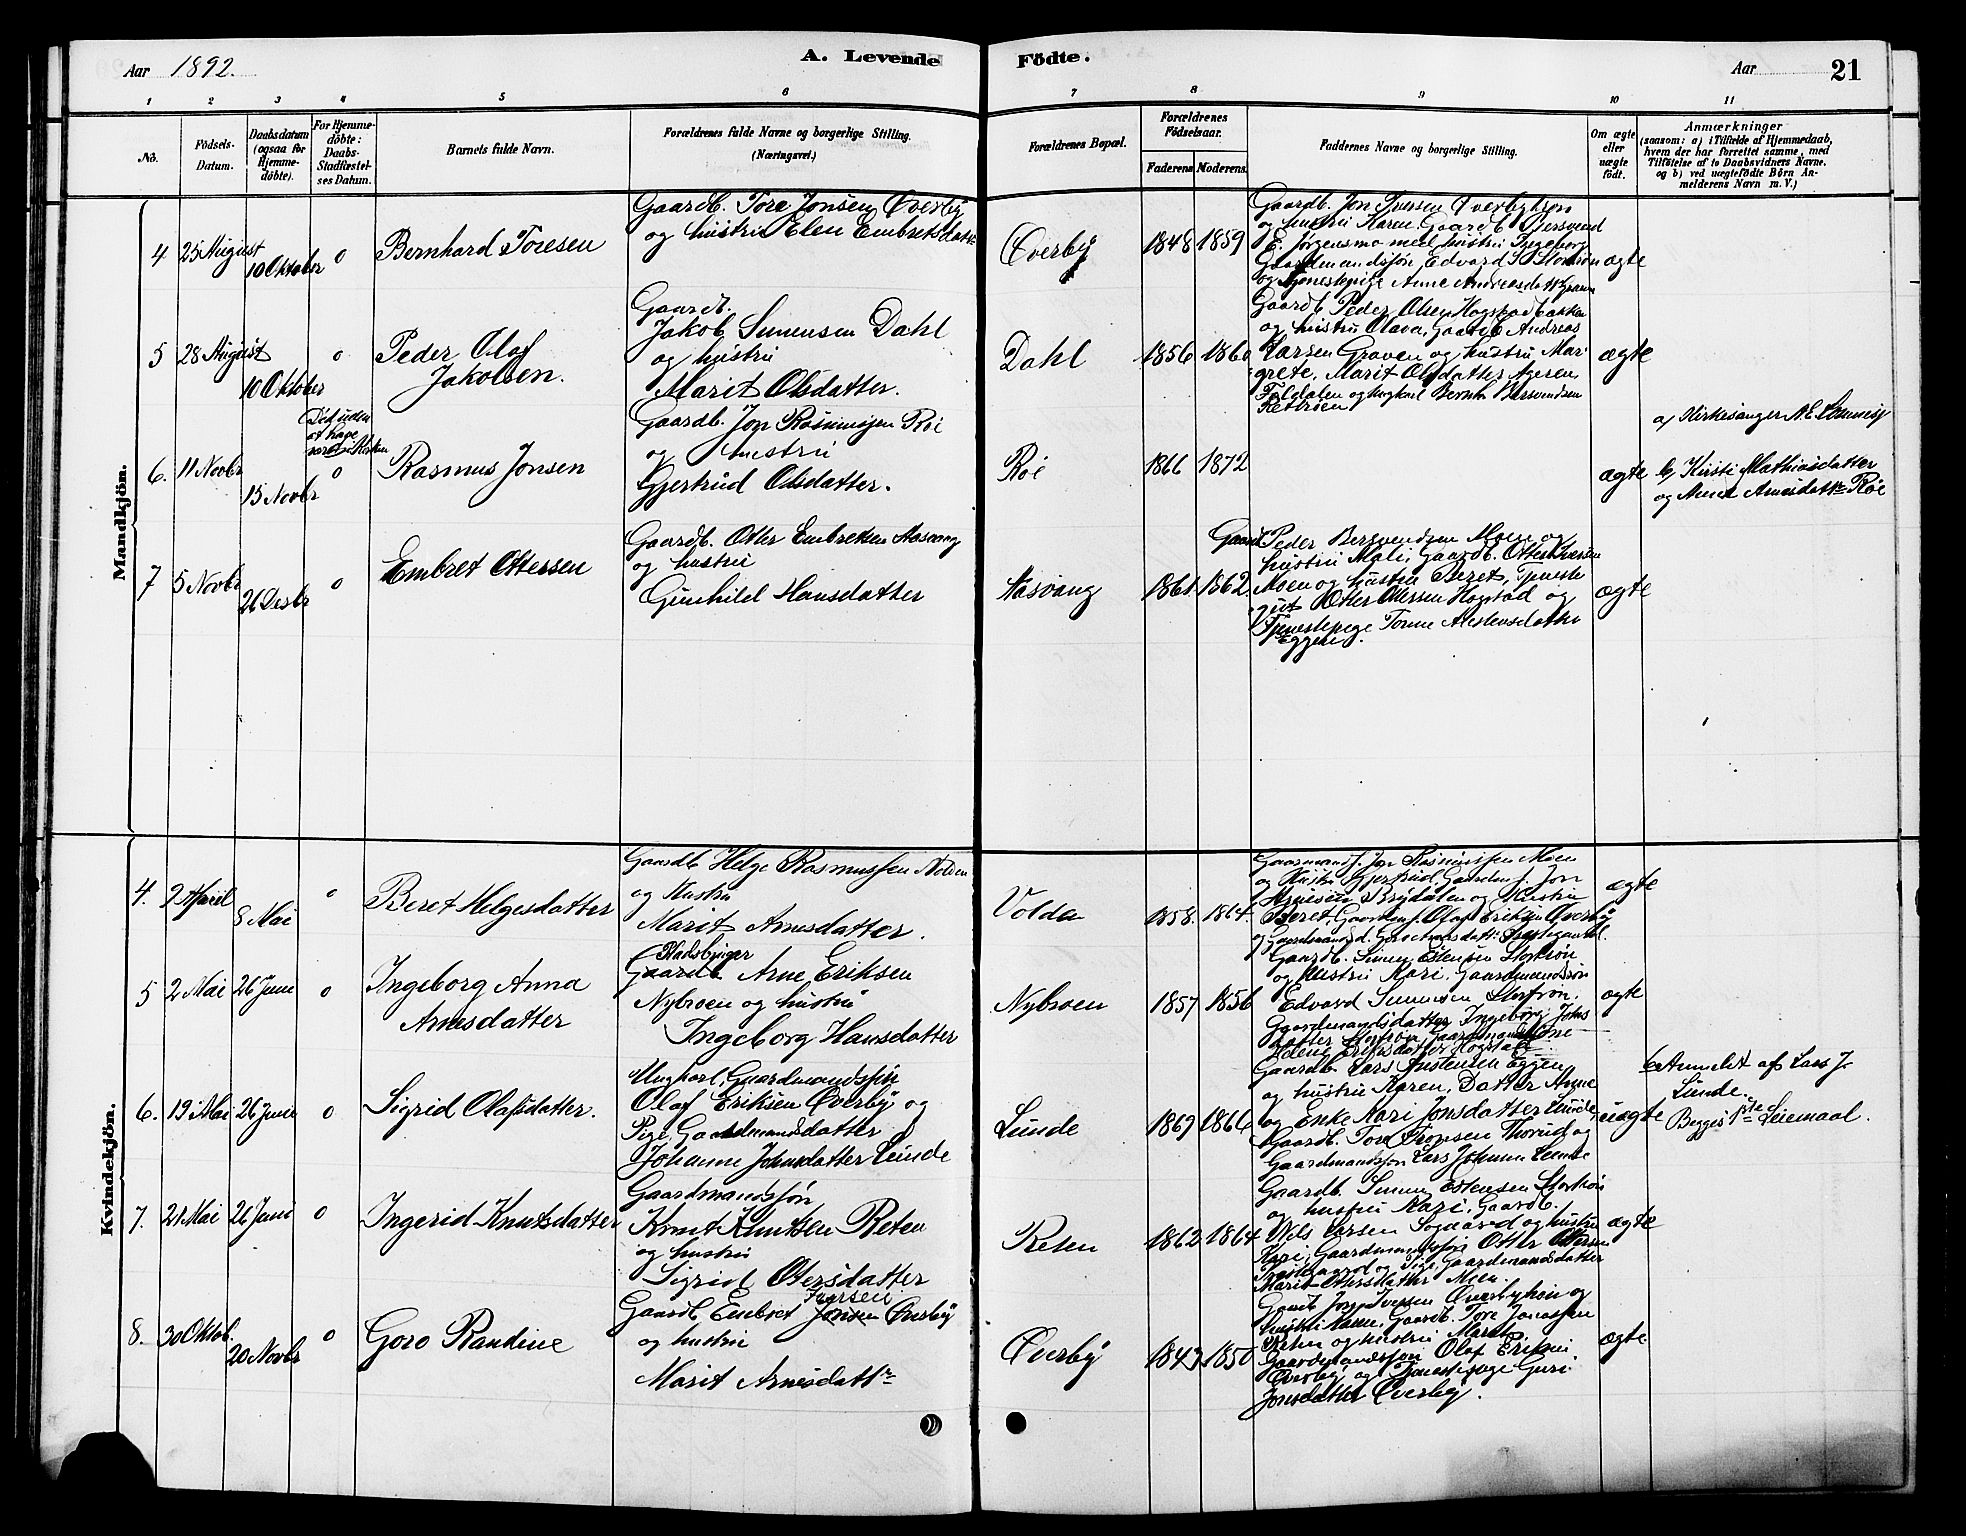 Aar 1892.
A. Levende
Födte.
Aar
21
1 2 3 4 5 6 7 8 9 10 11
No.
Födsels-
Datum.
Daabsdatum
(ogsaa for
Hjemme-
döbte).
For Hjemme-
döbte:
Daabs-
Stadfæstel-
ses Datum.
Barnets fulde Navn.
Forældrenes fulde Navne og borgerlige Stilling.
(Næringsvei.)
Forældrenes Bopæl.
Forældrenes
Födselsaar.
Faderens Moderens.
Faddernes Navne og borgerlige Stilling.
Om ægte
eller
uægte
födt.
Anmærkninger
(saasom: a) i Tilfælde af Hjemmedaab,
hvem der har forrettet samme, med
Tilföielse af to Daabsvidners Navne.
og b) ved uægtefödte Börn An-
melderens Navn m. V.)
Mandkjön.
4 25 August
10 Oktober
0
Bernhard Toresen
Gaardb. Tore Jonsen Øverby
og hustru Elen Embretsdatter
Øverby
1848 1859
Gaardb. Jon Iversen Øverbyhøn
og hustru Karen, Gaardb. Bersvend
E. Jørgensmo med hustru Ingeborg
Gaardmandssøn Edvard S. Storrøn
og Tjenestepige Anne Andreasdatter Graven
ægte
5 28 August
10 Oktober
0
Peder Olaf
Jakobsen.
Gaardb.
Jakob Simensen Dahl
og hustru
Marit Olsdatter.
Dahl
1856 1860
Gaardb. Peder Olsen Hogstadbakken
og hustru Olava, Gaardb. Andreas
Larsen Graven og hustru Mar-
grete, Marit Olsdatter
Foldalen og Ungkarl Bernh. Bersvendsen
ægte
6. 11 Novbr
15 Novbr
Død uden
at have
været i Kirken
0
Rasmus Jonsen
Gaardb. Jon Rasmussen Røe
og hustru
Gjertrud Olsdatter.
Røe
1866 1872
ægte
a) Kirkesanger N.E.
b) Kirsti Mathiasdatter
og Anne Arnesdatter Røe
7 5 Novbr
26 Desbr
0
Embret Ottersen
Gaardb. Otter Embretsen Aasvang
og hustru
Gunhild Hansdatter
Aasvang
1861 1862
Gaardb. Peder Bersvendsen Moen og
hustru Mali, Gaardb. Otter Iversen
Moen og hustru Beret, Tjeneste-
gut Otter Ottersen Hogstad og
Tjenestepige Tonne Alestensdatter
Eggen.
ægte
Kvindekjön.
4. 2 April
8 Mai
0
Beret Helgesdatter
Gaardb. Helge Rasmussen Volden
og Hustru
Marit Arnesdatter.
Volden
1858. 1864.
Gaardmands. Jon Rasmussen Moen
og Hustru Gjertrud, Gaardm.s. Jon
Arnesen Brydalen og Hustru
Beret, Gaardm.s. Olaf Eriksen Øverby
ægte
5 2 Mai 26 Juni 0
Ingeborg Anna
Arnesdatter
Pladsbruger
Gaardb. Arne Eriksen
Nybroen og hustru
Ingeborg Hansdatter
Nybroen
1857 1856
Gaardb. Simen Estensen Storrøn
og hustru Kari, Gaardmandssøn
Edvard Simensen Storrøn.
Gaardmandsdatter Ingeborg Johs
datter Storrøn, Gaardmandskone
ægte
6. 19 Mai 26 Juni 0
Sigrid Olafsdatter.
Ungkarl, Gaardmandssøn
Olaf Eriksen Øverby og
Pige, Gaardmandsdatter
Johanne Johnsdatter Lunde
Lunde
1869 1866
Gaardb. Lars Austensen Eggen
og hustru Karen, Datter Anne
og Enke Kari Jonsdatter Lunde,
Gaardb. Tore Tronsen Thorud og
Gaardmandssøn Lars Johnsen Lunde
uægte
b Anmeldt af Lars J.
Lunde.
Begges 1ste Leiemaal.
7. 21 Mai 26 Juni 0
Ingerid Knutsdatter
Gaardmandssøn
Knut Knutsen Reten
og hustru
Sigrid Otersdatter
Reten
1862 1864
Gaardb. Simen Estensen Storrøn
og hustru Kari, Gaardb.
Nils Larsen Sogaard og hustru
Kari, Gaardmandssøn Otter Otersen
Præstegaard og Pige, Gaardmandsdatter
Marit Otersdatter Moen.
ægte
8. 30 Oktob.
20 Novbr
0
Goro Randine
Gaardb. Embret Jonsen Iversen Øverby
og hustru
Marit Arnesdattr
Øverby
1843 1850
Gaardb. Jon Iversen Øverbyhøn og
hustru Karen, Gaardb. Tore Jonassen
Reten og hustru Marit
Gaardmandssøn Olaf Eriksen
Øverby, og Tjenestepige Guri
Jonsdatter Øverby.
ægte